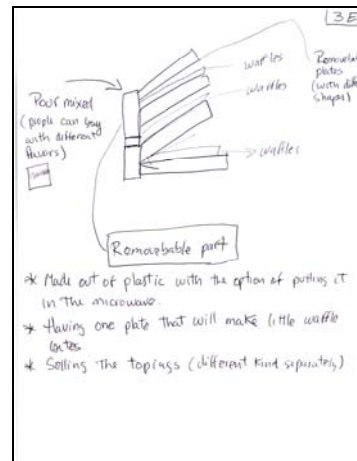 3E
waffles
waffles
Removebable
plates
(with diff
shapes)
Pour mixed
(people can buy
with different
flavors)
waffles
Removebable part
* Made out of plastic with the option of putting it
in the microwave.
* Having one plate that will make little waffle
* Selling the topings (different kind separately)